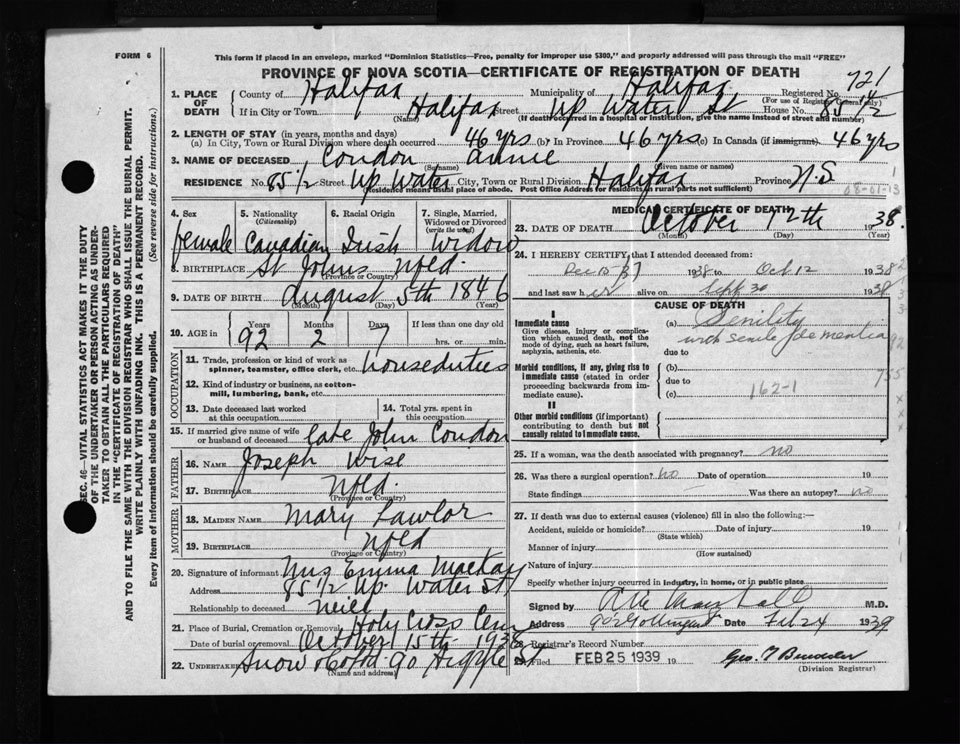 FORM 6
This form if placed in an envelope, marked "Dominion Statistics—Free, penalty for improper use $300," and properly addressed will pass through the mail "FREE"
PROVINCE OF NOVA SCOTIA—CERTIFICATE OF REGISTRATION OF DEATH
1. PLACE OF DEATH County of Halifax Municipality of Halifax Registered No. 721
(For use of Registrar General only)
If in City or Town Halifax Street Up Water St House No. 85 1/2
(Name) (If death occurred in a hospital or institution, give the name instead of street and number)
2. LENGTH OF STAY (in years, months and days)
(a) In City, Town or Rural Division where death occurred 46 yrs (b) In Province 46 yrs (c) In Canada (if immigrant) 46 yrs
3. NAME OF DECEASED Condon Annie
(Surname) (Given name or names)
RESIDENCE No. 85 1/2 Street Up Water City, Town or Rural Division Halifax Province N.S
(Residence means usual place of abode. Post Office Address for residents in rural parts not sufficient)
4. Sex female
5. Nationality (Citizenship) Canadian
6. Racial Origin Irish
7. Single, Married, Widowed or Divorced (write the word) Widow
8. BIRTHPLACE St Johns Nfld.
(Province or Country)
9. DATE OF BIRTH August 5th 1846
(Month) (Day) (Year)
10. AGE in Years 92 Months 2 Days 7 If less than one day old hrs. or min.
OCCUPATION
11. Trade, profession or kind of work as spinner, teamster, office clerk, etc. houseduties
12. Kind of industry or business, as cotton-mill, lumbering, bank, etc.
13. Date deceased last worked at this occupation
14. Total yrs. spent in this occupation
15. If married give name of wife or husband of deceased late John Condon
FATHER
16. Name Joseph Wise
17. Birthplace Nfld.
(Province or Country)
MOTHER
18. Maiden Name Mary Lawlor
19. Birthplace Nfld
(Province or Country)
20. Signature of informant Mrs Emma Mackay
Address 85 1/2 Up Water St
Relationship to deceased
21. Place of Burial, Cremation or Removal Holy Cross Cem
Date of burial or removal October 15th 1938
22. Undertaker Snow & Co Ltd 90 Argyle St
(Name and address)
MEDICAL CERTIFICATE OF DEATH
23. DATE OF DEATH October 12th 1938
(Month) (Day) (Year)
24. I HEREBY CERTIFY that I attended deceased from:
Dec 10 37 1938 to Oct 12 1938
and last saw her alive on Sept 30 1938
CAUSE OF DEATH
I
Immediate cause
Give disease, injury or complication which caused death, not the mode of dying, such as heart failure, asphyxia, asthenia, etc.
(a) Senility
with senile dementia
due to
Morbid conditions, if any, giving rise to immediate cause (stated in order proceeding backwards from immediate cause).
(b)
due to
(c) 162-1
II
Other morbid conditions (if important) contributing to death but not causally related to immediate cause.
25. If a woman, was the death associated with pregnancy? no
26. Was there a surgical operation? No Date of operation 19
State findings Was there an autopsy? no
27. If death was due to external causes (violence) fill in also the following:—
Accident, suicide or homicide? Date of injury 19
(State which)
Manner of injury
(How sustained)
Nature of injury
Specify whether injury occurred in industry, in home, or in public place
Signed by M.D.
Address Date Feb 24 1939
28. Registrar's Record Number
29. Filed FEB 25 1939 19
(Division Registrar)
SEC. 46—VITAL STATISTICS ACT MAKES IT THE DUTY OF THE UNDERTAKER OR PERSON ACTING AS UNDERTAKER TO OBTAIN ALL THE PARTICULARS REQUIRED IN THE "CERTIFICATE OF REGISTRATION OF DEATH" AND TO FILE THE SAME WITH THE DIVISION REGISTRAR WHO SHALL ISSUE THE BURIAL PERMIT.
WRITE PLAINLY WITH UNFADING INK. THIS IS A PERMANENT RECORD.
Every item of information should be carefully supplied. (See reverse side for instructions.)